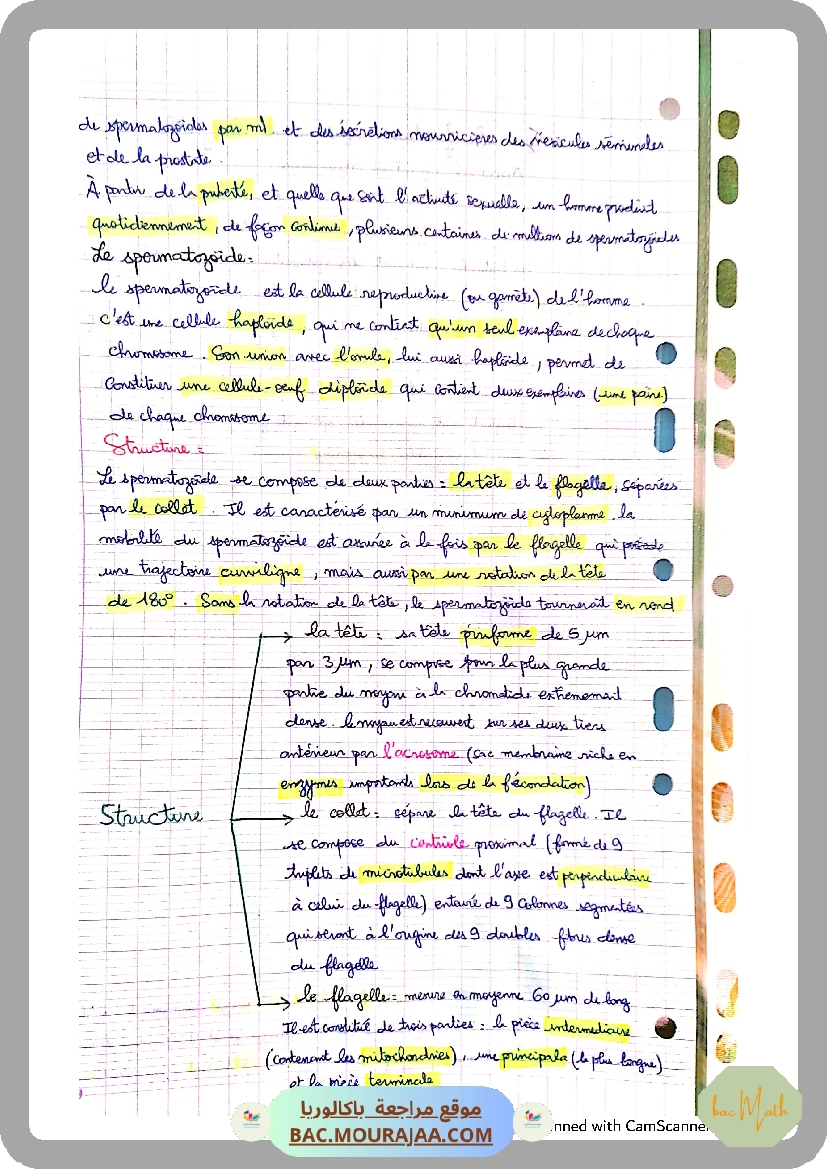 de spermatozoïdes par ml et des sécrétions nourricières des vésicules séminales
et de la prostate.
À partir de la puberté, et quelle que soit l'activité sexuelle, un homme produit
quotidiennement, de façon continue, plusieurs centaines de millions de spermatozoïdes
Le spermatozoïde:
le spermatozoïde est la cellule reproductive (ou gamète) de l'homme.
c'est une cellule haploïde, qui ne contient qu'un seul exemplaire de chaque
chromosome. Son union avec l'ovule, lui aussi haploïde, permet de
constituer une cellule-œuf diploïde qui contient deux exemplaires (une paire)
de chaque chromosome
Structure:
Le spermatozoïde se compose de deux parties: la tête et le flagelle, séparées
par le collet. Il est caractérisé par un minimum de cytoplasme. la
mobilité du spermatozoïde est assurée à la fois par le flagelle qui
une trajectoire curviligne, mais aussi par une rotation de la tête
de 180°. Sans la rotation de la tête, le spermatozoïde tournerait en rond
la tête: sa tête piriforme de 5 µm
par 3 µm, se compose pour la plus grande
partie du noyau à la chromatide extrêmement
dense. le noyau est recouvert sur ses deux tiers
antérieur par l'acrosome (sac membraine riche en
enzymes importants lors de la fécondation)
Structure
le collet: sépare la tête du flagelle. Il
se compose du centriole proximal (formé de 9
triplets de microtubules dont l'axe est perpendiculaire
à celui du flagelle) entouré de 9 colonnes segmentées
qui seront à l'origine des 9 doubles fibres dense
du flagelle
le flagelle: mesure en moyenne 60 µm de long
Il est constitué de trois parties: la pièce intermediaire
(contenant les mitochondries), une principale (la plus longue)
et la pièce terminale
موقع مراجعة باكالوريا
BAC.MOURAJAA.COM
nned with CamScanner
bac Math